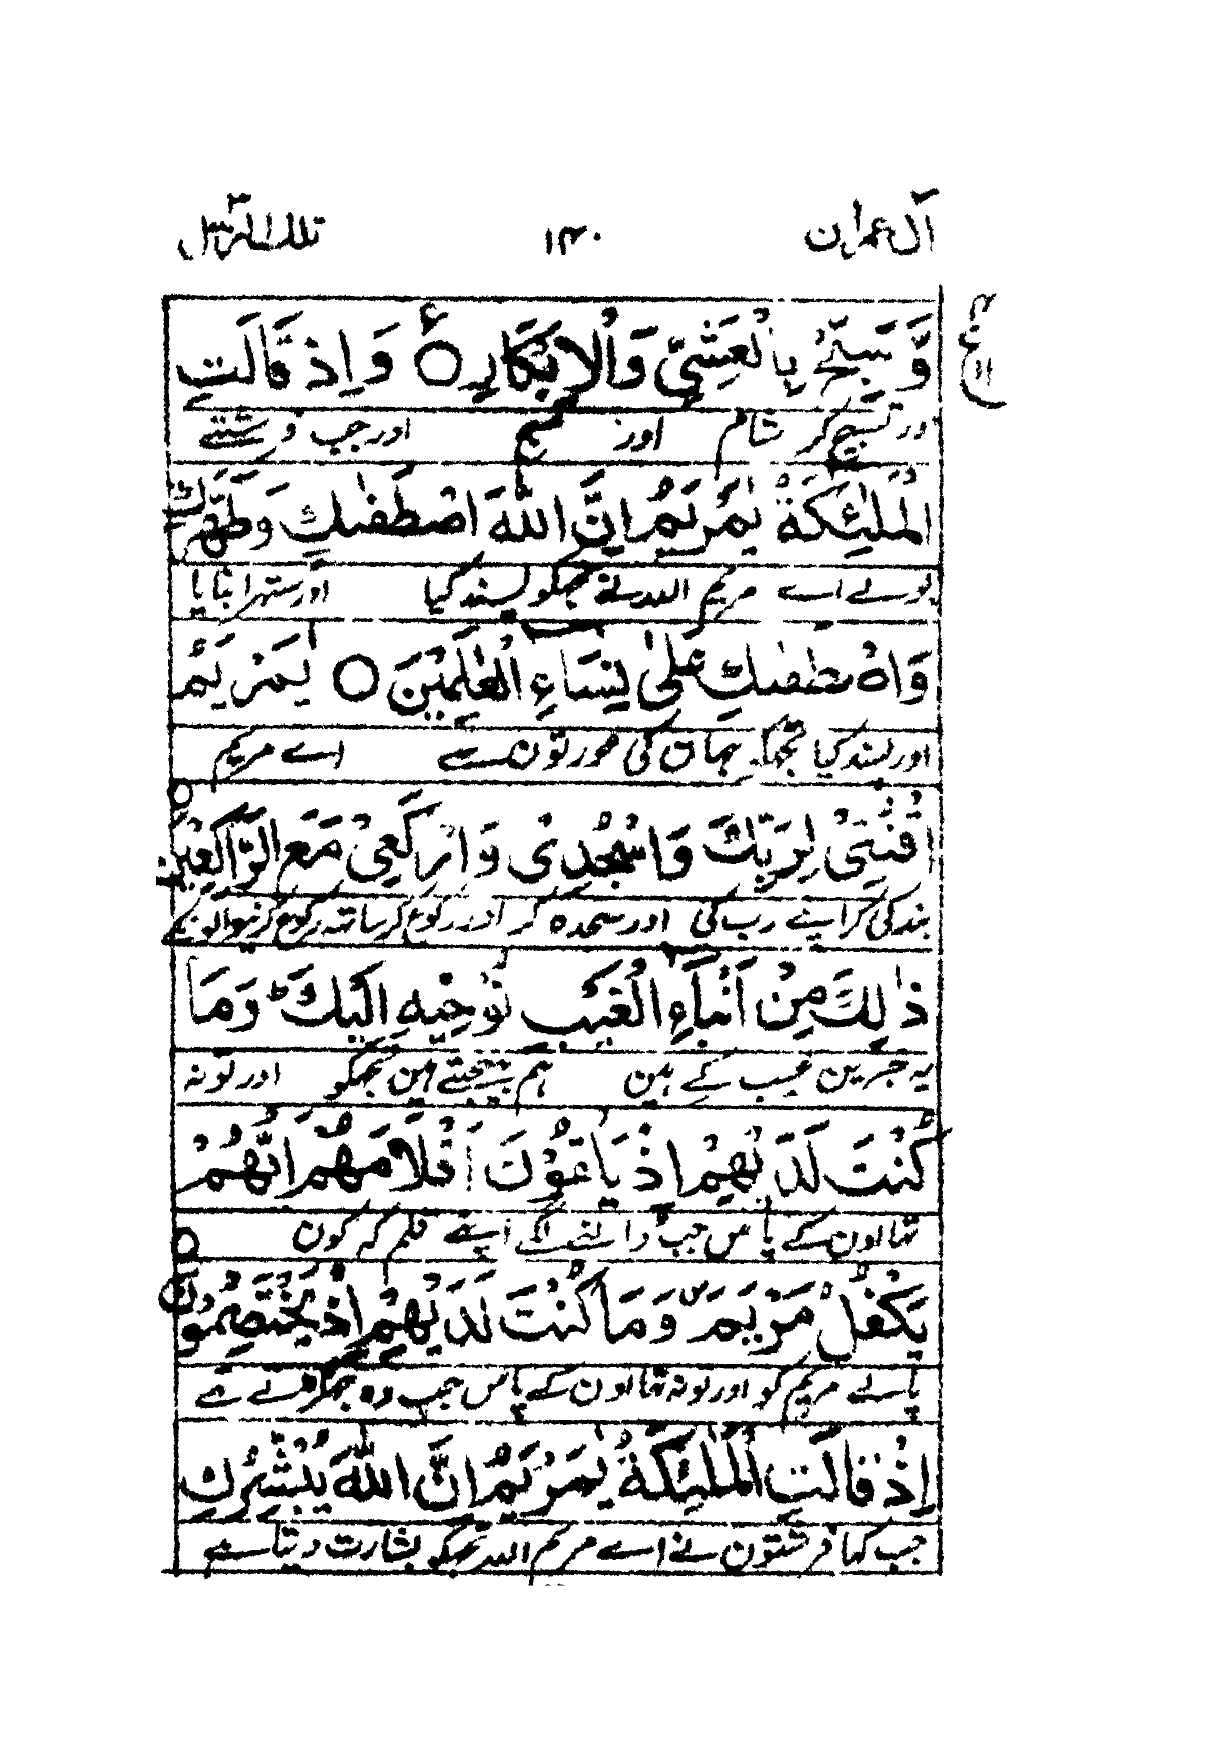 آل عمران ۱۴۰ تلك الرسل ۳
وَّسَبِّحْ بِالْعَشِيِّ وَالْاِبْكَارِ ○ ع وَاِذْ قَالَتِ
اور تسبیح کر شام اور اور جب فرشتے
الْمَلٰٓئِكَةُ يٰمَرْيَمُ اِنَّ اللّٰهَ اصْطَفٰىكِ وَطَهَّرَكِ
بولے اے مریم اللہ نے تجھکو پسند کیا اور ستھرا بنایا
وَاصْطَفٰىكِ عَلٰى نِسَآءِ الْعٰلَمِيْنَ ○ يٰمَرْيَمُ
اور پسند کیا تجھکو جہان کی عورتون سے اے مریم
اقْنُتِيْ لِرَبِّكِ وَاسْجُدِيْ وَارْكَعِيْ مَعَ الرّٰكِعِيْنَ ○
بندگی کر اپنے رب کی اور سجدہ کر اور رکوع کر ساتھ رکوع کرنیوالونکے
ذٰلِكَ مِنْ اَنْۢبَآءِ الْغَيْبِ نُوْحِيْهِ اِلَيْكَ ؕ وَمَا
یہ خبرین غیب کے ہین ہم بھیجتے ہین تجھکو اور تو نہ
كُنْتَ لَدَيْهِمْ اِذْ يُلْقُوْنَ اَقْلَامَهُمْ اَيُّهُمْ
تھا اون کے پاس جب ڈالنے لگے اپنے قلم کہ کون
يَكْفُلُ مَرْيَمَ ۪ وَمَا كُنْتَ لَدَيْهِمْ اِذْ يَخْتَصِمُوْنَ ○
پالے مریم کو اور تو نہ تھا اون کے پاس جب وہ جھگڑتے تھے
اِذْ قَالَتِ الْمَلٰٓئِكَةُ يٰمَرْيَمُ اِنَّ اللّٰهَ يُبَشِّرُكِ
جب کہا فرشتون نے اے مریم اللہ تجھکو بشارت دیتا ہے